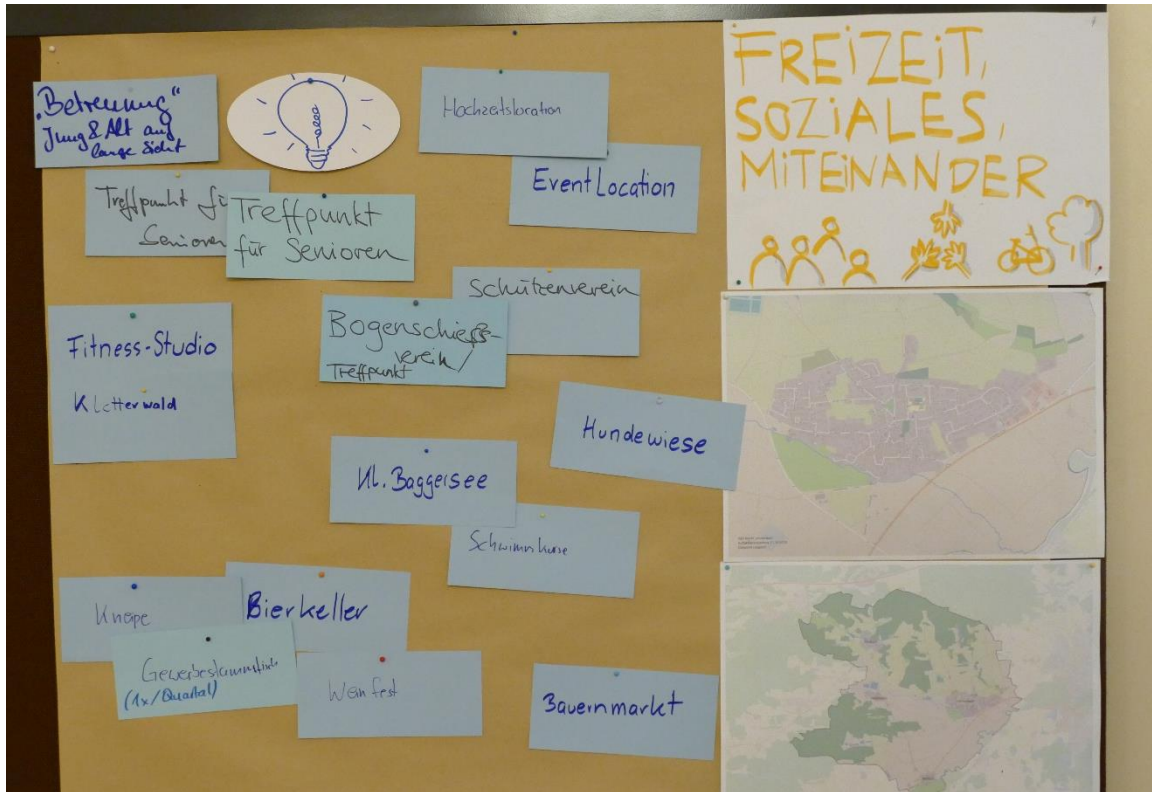 „Betreuung"
Jung & Alt auf
lange Sicht
Treffpunkt für
Senioren
Treffpunkt
für Senioren
Hochzeitslocation
EventLocation
Schützenverein
Bogenschieß-
verein/
Treffpunkt
Fitness-Studio
Kletterwald
Hundewiese
Kl. Baggersee
Schwimmkurse
Kneipe
Bierkeller
Gewerbestammtisch
(1x/Quartal)
Weinfest
Bauernmarkt
FREIZEIT,
SOZIALES,
MITEINANDER